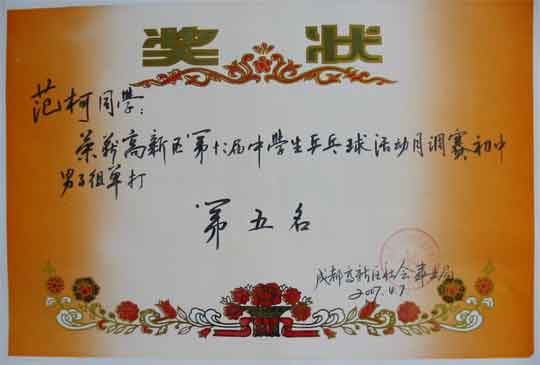 奖状
范柯同学：
荣获高新区第十六届中学生乒乓球活动月调赛初中
男子组单打
第五名
成都高新区社会事业局
2007.4.7